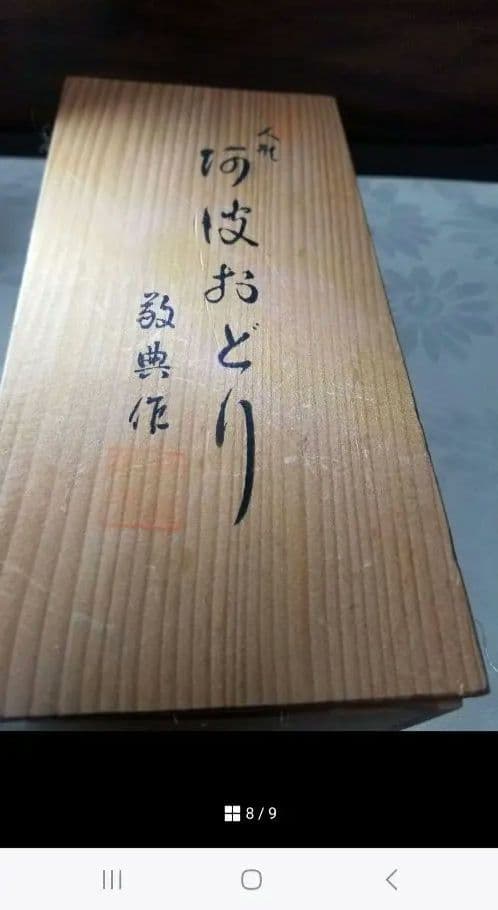 人形
阿波おどり
敬典作
8 / 9